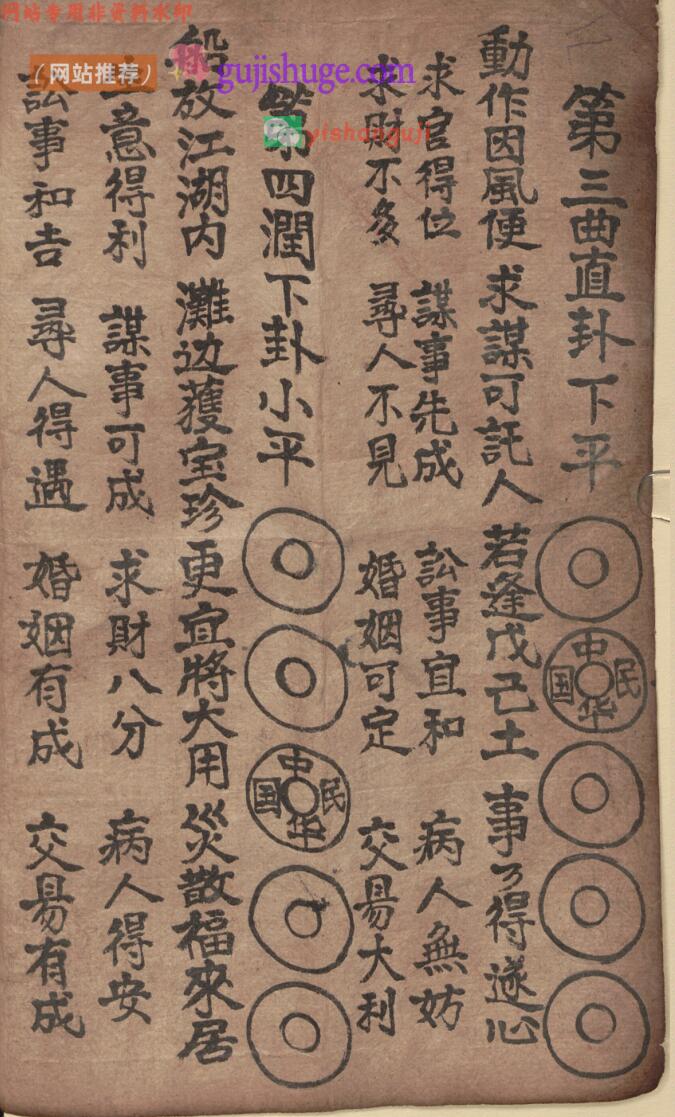 网站专用非资料水印
（网站推荐）
gujishuge.com
yishanguji
第三曲直卦下平
中華民国
動作因風便 求謀可託人 若逢戊己土 事乃得遂心
求官得位 謀事先成 訟事宜和 病人無妨
求財不多 尋人不見 婚姻可定 交易大利
第四潤下卦小平
中華民国
船放江湖内 灘边蒦宝珍 更宜將大用 災散福來居
意得利 謀事可成 求財八分 病人得安
訟事和吉 尋人得遇 婚姻有成 交易有成